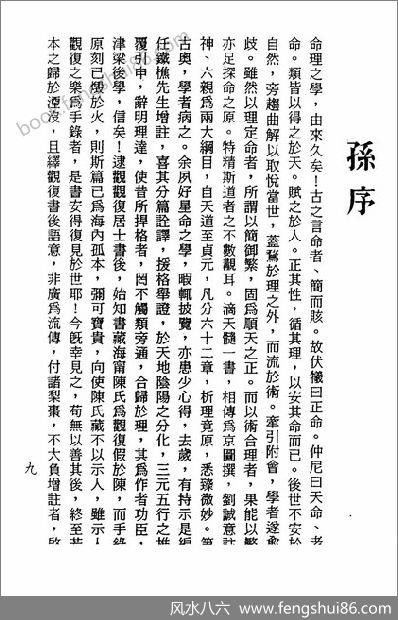 孫序
命理之學，由來久矣！古之言命者、簡而賅。故伏犧曰正命。仲尼曰天命、老
命。類皆以得之於天。賦之於人。正其性，循其理，以安其命而已。後世不安於
自然，旁趨曲解以取悅當世，蓋騖於理之外，而流於術。牽引附會，學者遂愈
歧。雖然以理定命者，所謂以簡御繁，固爲順天之正。而以術合理者，果能以繁
亦足深命之原。特精斯道者之不數覯耳。滴天髓一書，相傳爲京圖撰，劉誠意註
神、六親爲兩大綱目，自天道至貞元，凡分六十二章，析理竟原，悉臻微妙。第
古奧，學者病之。余夙好星命之學，暇輒披覽，亦患少心得，去歲，有持示是編
任鐵樵先生增註，喜其分篇詮譯，援格舉證，於天地陰陽之分化，三元五行之推
覆引申，辭明理達，使昔所捍格者，罔不觸類旁通，合歸於理，其爲作者功臣，
津梁後學，信矣！逮觀觀復居士書後，始知書藏海甯陳氏爲觀復假於陳，而手錄
原刻已燬於火，則斯篇已爲海內孤本，彌可寶貴，向使陳氏藏不以示人，雖示人
觀復之樂爲手錄者，是書安得復見於世耶！今旣幸見之，苟無以善其後，終至若
本之歸於湮沒，且繹觀復書後語意，非廣爲流傳，付諸梨棗，不大負增註者，
九
风水八六：www.fengshui86.com